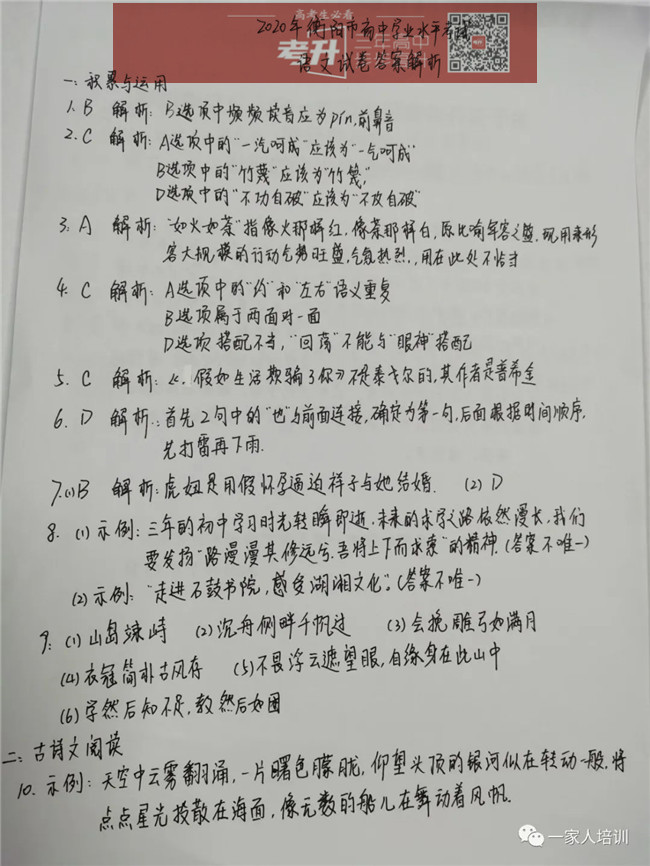 高考生必看
考升
三年高中
2020年衡阳市高中学业水平考试
语文试卷答案解析
一、积累与运用
1. B 解析：B选项中频频读音应为pín,前鼻音
2. C 解析：A选项中的"一汽呵成"应该为"一气呵成"
B选项中的"竹蔑"应该为"竹篾"
D选项中的"不功自破"应该为"不攻自破"
3. A 解析："如火如荼"指像火那样红，像荼那样白，原比喻军容之盛，现用来形
容大规模的行动气势旺盛，气氛热烈，用在此处不恰当
4. C 解析：A选项中的"约"和"左右"语义重复
B选项属于两面对一面
D选项搭配不当，"回荡"不能与"眼神"搭配
5. C 解析：《假如生活欺骗了你》不是泰戈尔的，其作者是普希金
6. D 解析：首先2句中的"也"与前面连接，确定为第一句，后面根据时间顺序，
先打雷再下雨.
7.(1)B 解析：虎妞是用假怀孕逼迫祥子与她结婚. (2) D
8. (1) 示例：三年的初中学习时光转瞬即逝，未来的求学之路依然漫长，我们
要发扬"路漫漫其修远兮，吾将上下而求索"的精神.(答案不唯一)
(2) 示例："走进石鼓书院，感受湖湘文化"。(答案不唯一)
9: (1) 山岛竦峙 (2) 沉舟侧畔千帆过 (3) 会挽雕弓如满月
(4) 衣冠简朴古风存 (5) 不畏浮云遮望眼，自缘身在此山中
(6) 学然后知不足，教然后知困
二：古诗文阅读
10. 示例：天空中云雾翻涌，一片曙色朦胧，仰望头顶的银河似在转动一般，将
点点星光投散在海面，像无数的船儿在舞动着风帆.
一家人培训